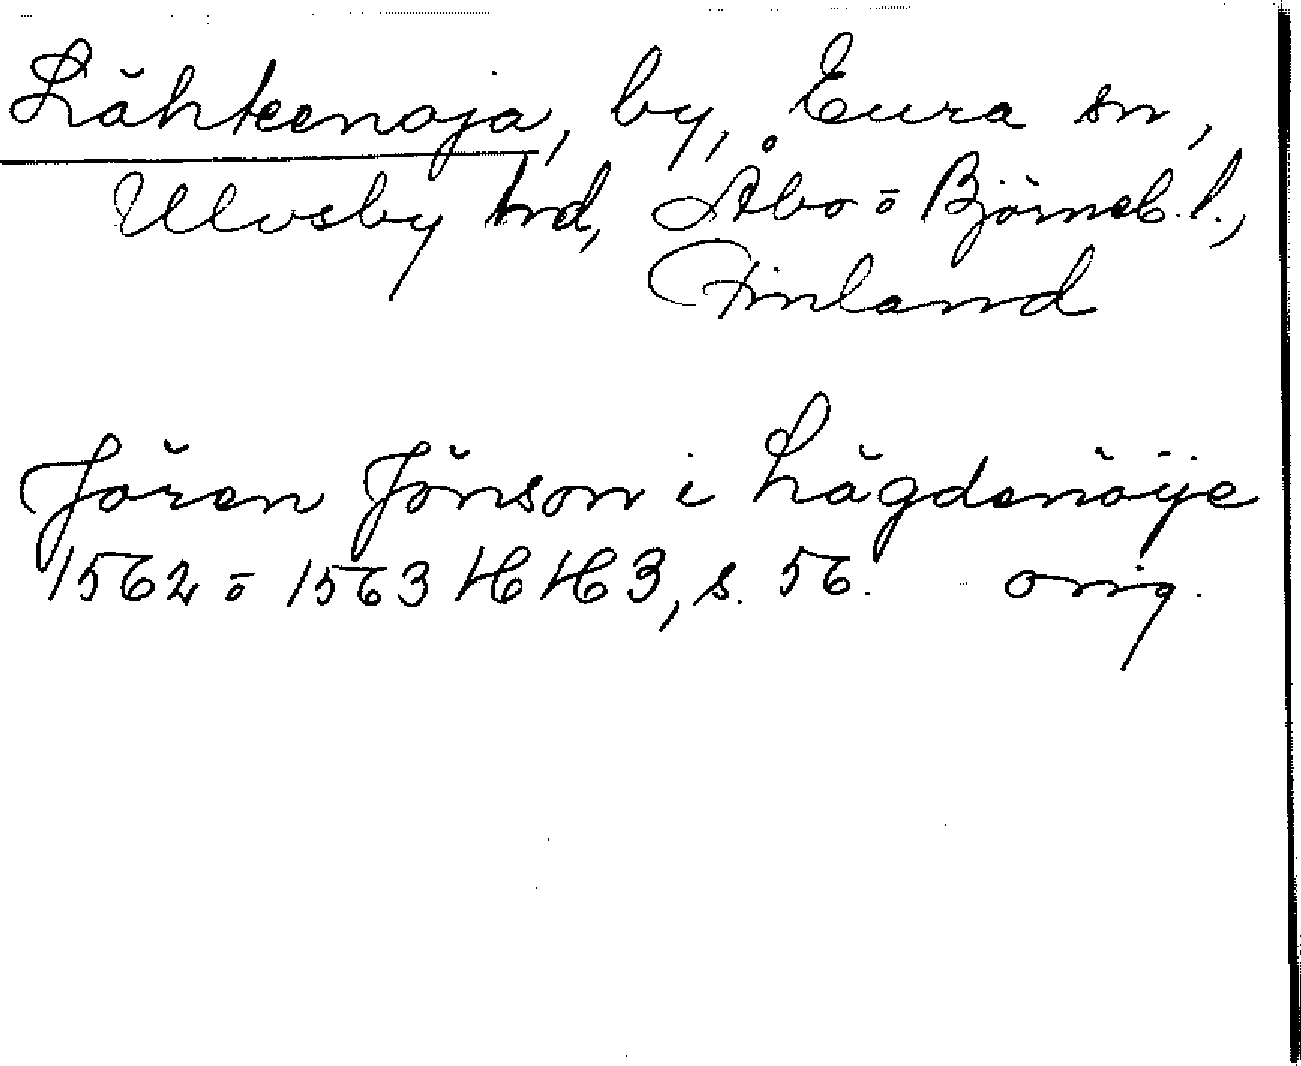 Lähteenoja, by, Eura sn,
Ulvsby hrd, Åbo o Björneb. l.,
Finland
Jören Jönson i Lägdenöije
1562 o 1563 HH3, s. 56. orig.